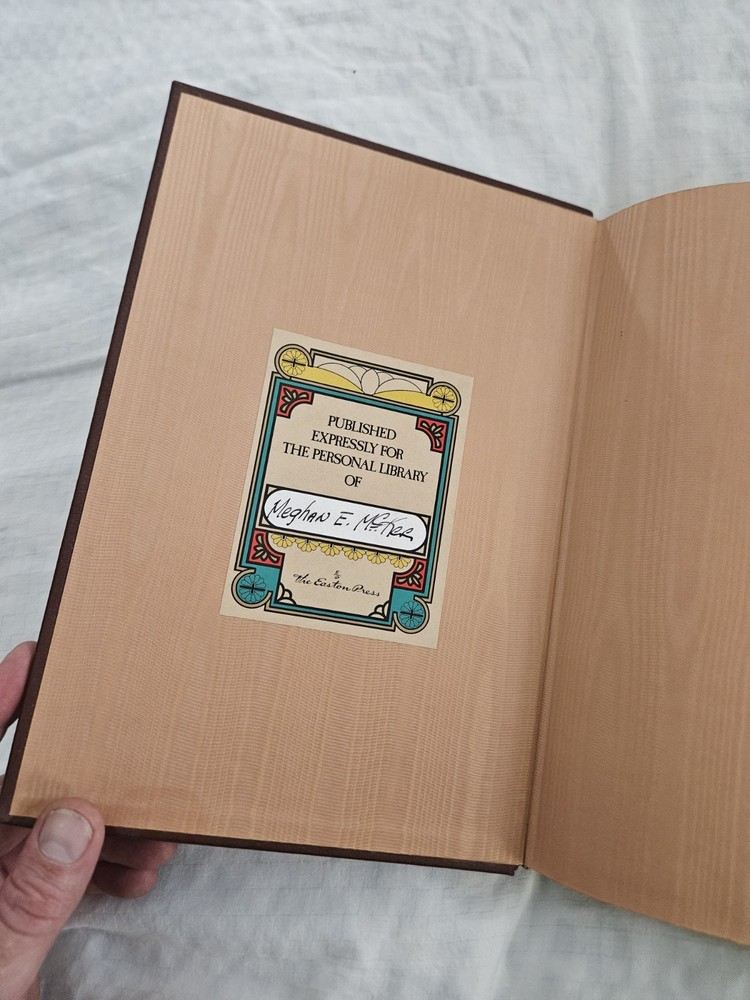 PUBLISHED
EXPRESSLY FOR
THE PERSONAL LIBRARY
OF
Meghan E.
The Easton Press